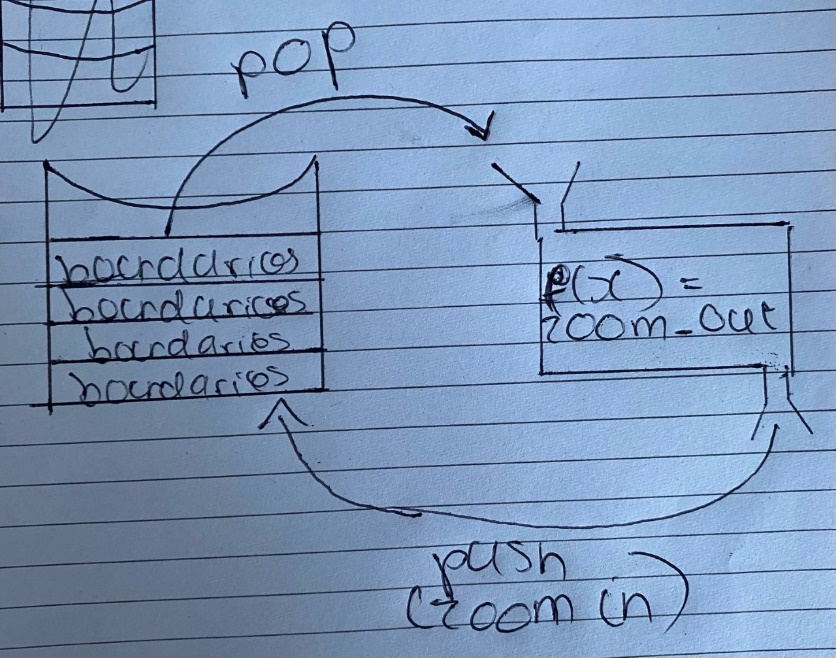 pop
boundaries
boundaries
boundaries
boundaries
f(x) =
zoom_out
push
(zoom in)